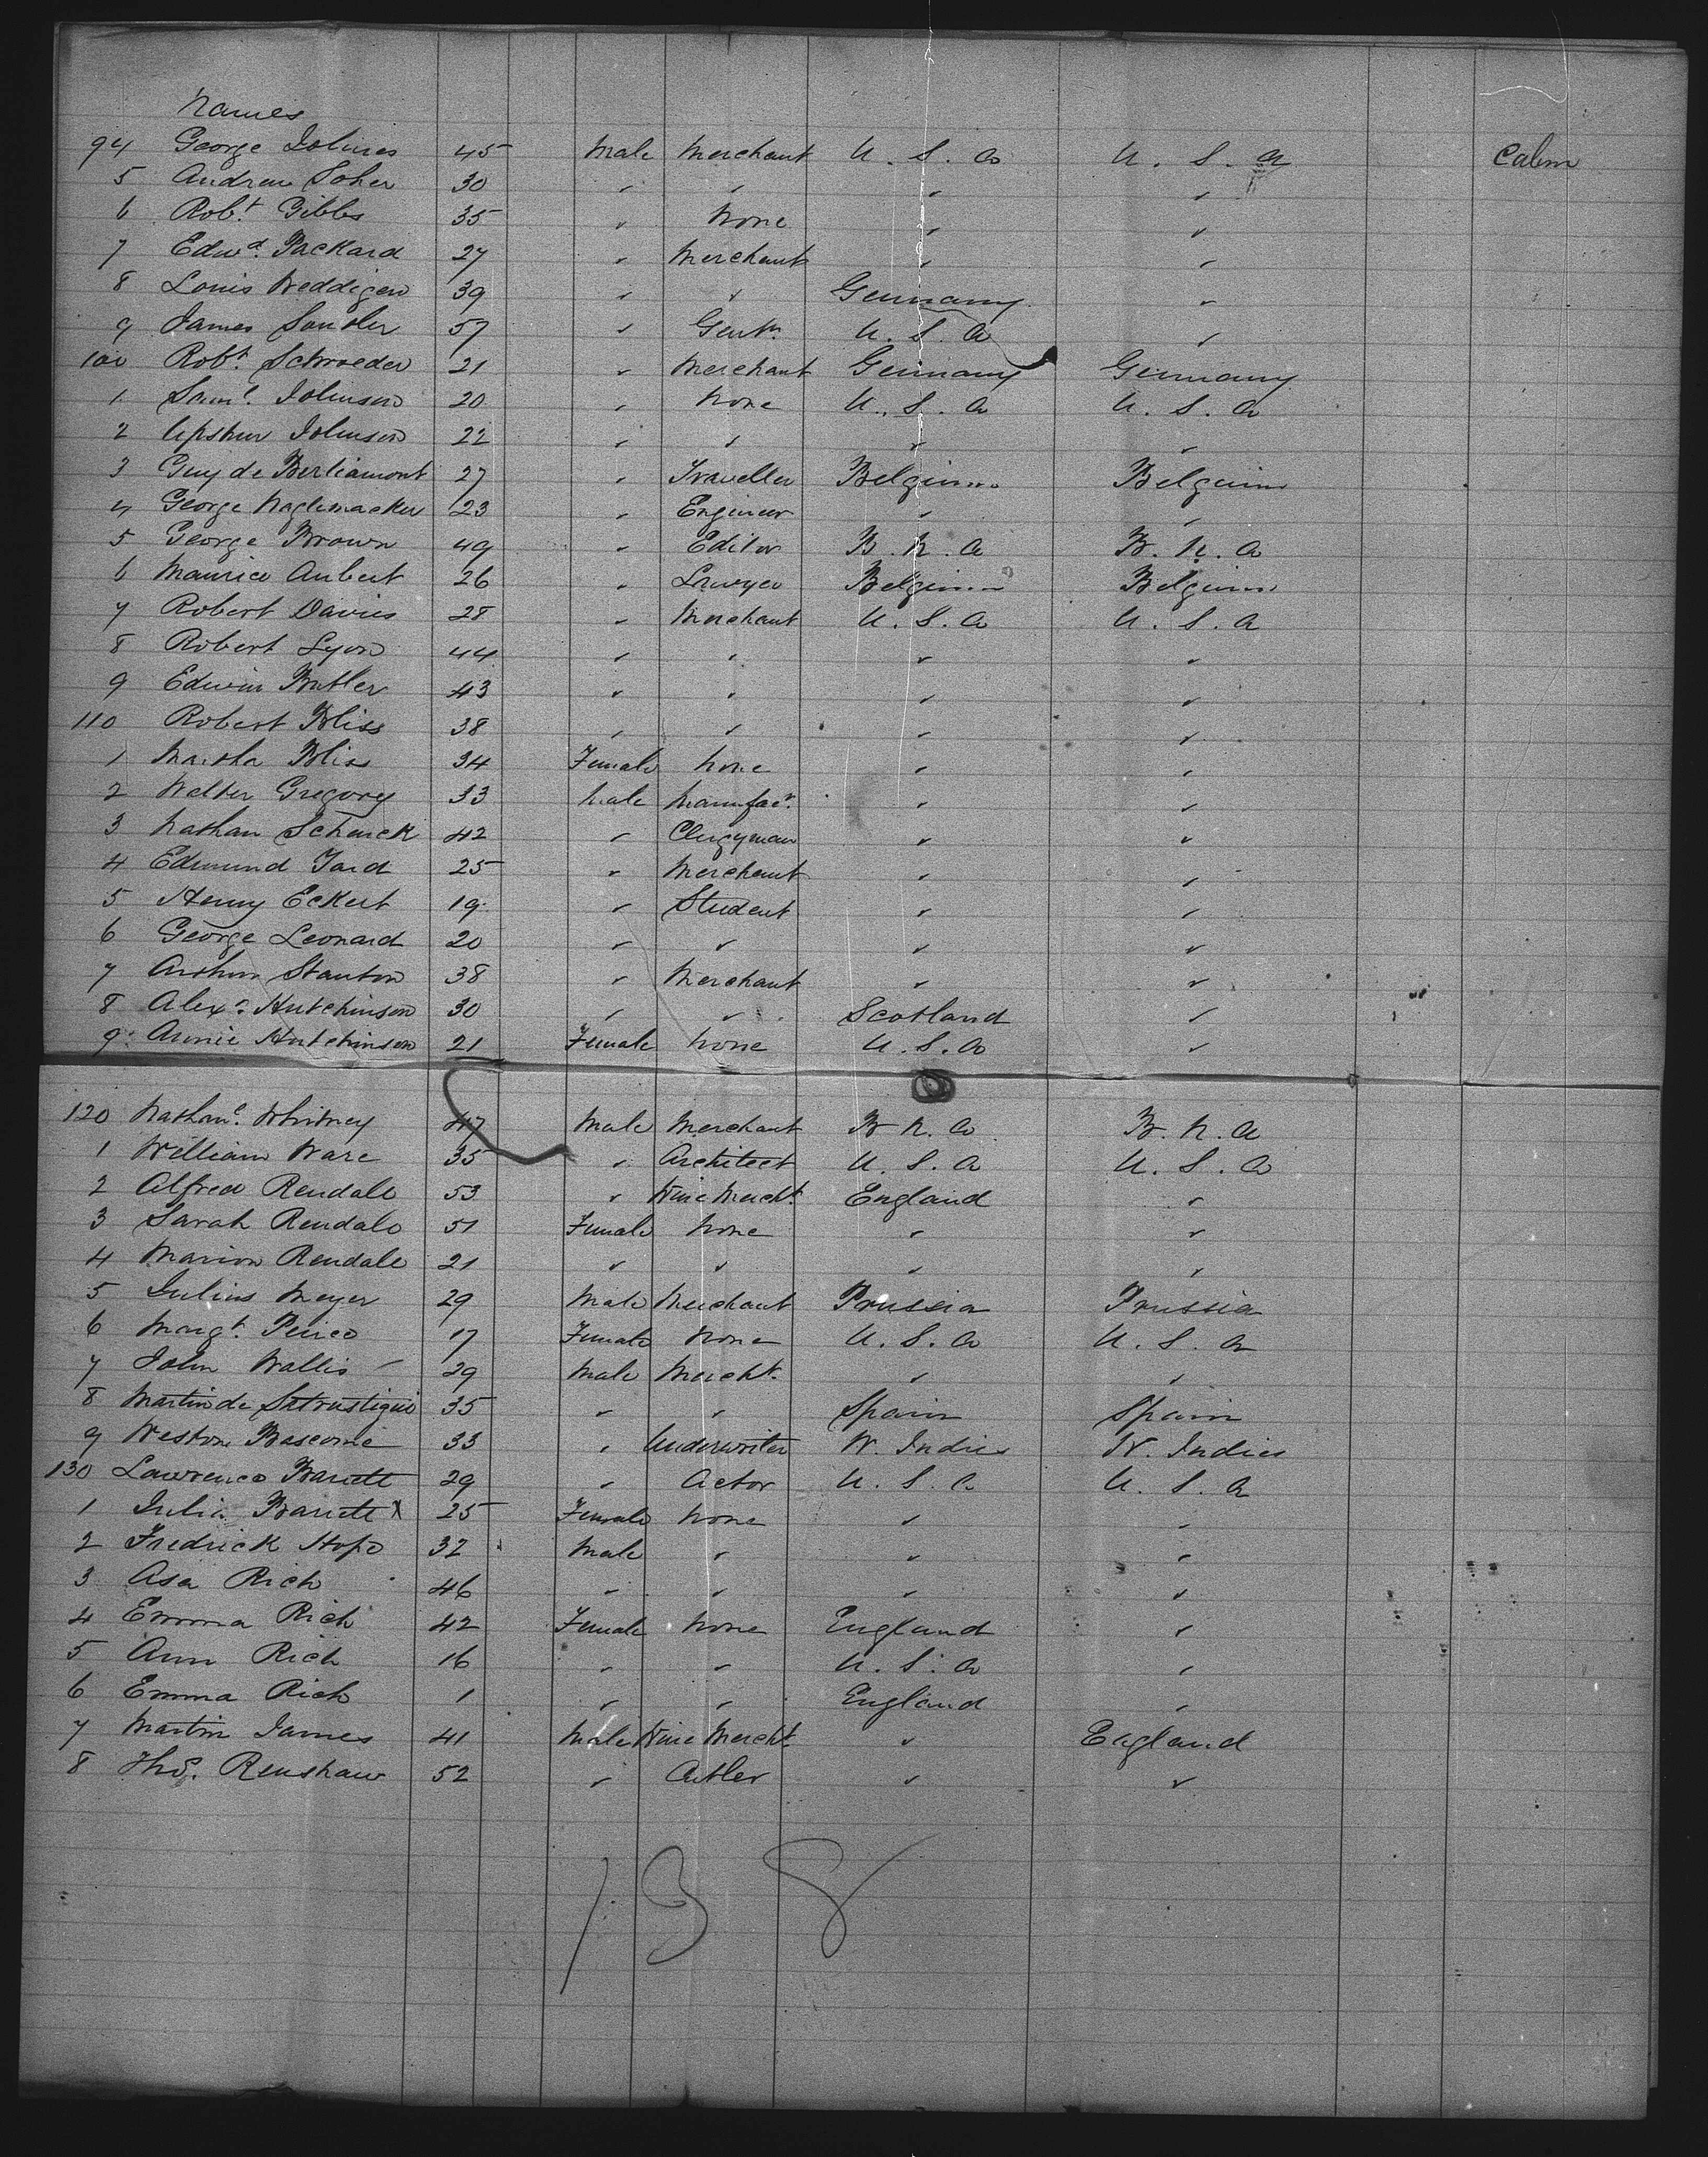 Names
94 George Holmes 45 Male Merchant U. S. A U. S. A Cabin
5 Andrew Soher 30 " " " "
6 Robt. Gibbs 35 " None " "
7 Edwd. Packard 27 " Merchant " "
8 Louis Weddigen 39 " " Germany "
9 James 57 " Gentn. U. S. A "
100 Robt. Schroeder 21 " Merchant Germany Germany
1 Saml. Johnson 20 " None U. S. A U. S. A
2 Upshur Johnson 22 " " " "
3 Guy de Berliamont 27 " Traveller Belgium Belgium
4 George Naglemacker 23 " Engineer " "
5 George Brown 49 " Editor B. N. A B. N. A
6 Maurice Aubert 26 " Lawyer Belgium Belgium
7 Robert Davies 28 " Merchant U. S. A U. S. A
8 Robert Lyon 44 " " " "
9 Edwin Butler 43 " " " "
110 Robert Bliss 38 " " " "
1 Martha Bliss 34 Female None " "
2 Walter Gregory 33 Male Manufacr. " "
3 Nathan Schenck 42 " Clergyman " "
4 Edmund Yard 25 " Merchant " "
5 Henry Eckert 19 " Student " "
6 George Leonard 20 " " " "
7 Arthur Stanton 38 " Merchant " "
8 Alexr. Hutchinson 30 " " Scotland "
9 Annie Hutchinson 21 Female None U. S. A "
120 Nathanl. Whitney 47 Male Merchant B N. A B. N. A
1 William Ware 35 " Architect U. S. A U. S. A
2 Alfred Rendall 53 " Wine Mercht. England "
3 Sarah Rendall 51 Female None " "
4 Marion Rendall 21 " " " "
5 Julius Meyer 29 Male Merchant Prussia Prussia
6 Margt. Peirce 17 Female None U. S. A U. S. A
7 John Wallis 29 Male Mercht. " "
8 Martin de Satrustigui 35 " " Spain Spain
9 Weston Bascome 33 " Underwriter W. Indies W. Indies
130 Lawrence Barrett 29 " Actor U. S. A U. S. A
1 Julia Barrett X 25 Female None " "
2 Fredrick Hope 32 Male " " "
3 Asa Rich 46 " " " "
4 Emma Rich 42 Female None England "
5 Ann Rich 16 " " U. S. A "
6 Emma Rich 1 " " England "
7 Martin James 41 Male Wine Mercht. " England
8 Thos. Renshaw 52 " Cutler " "
138